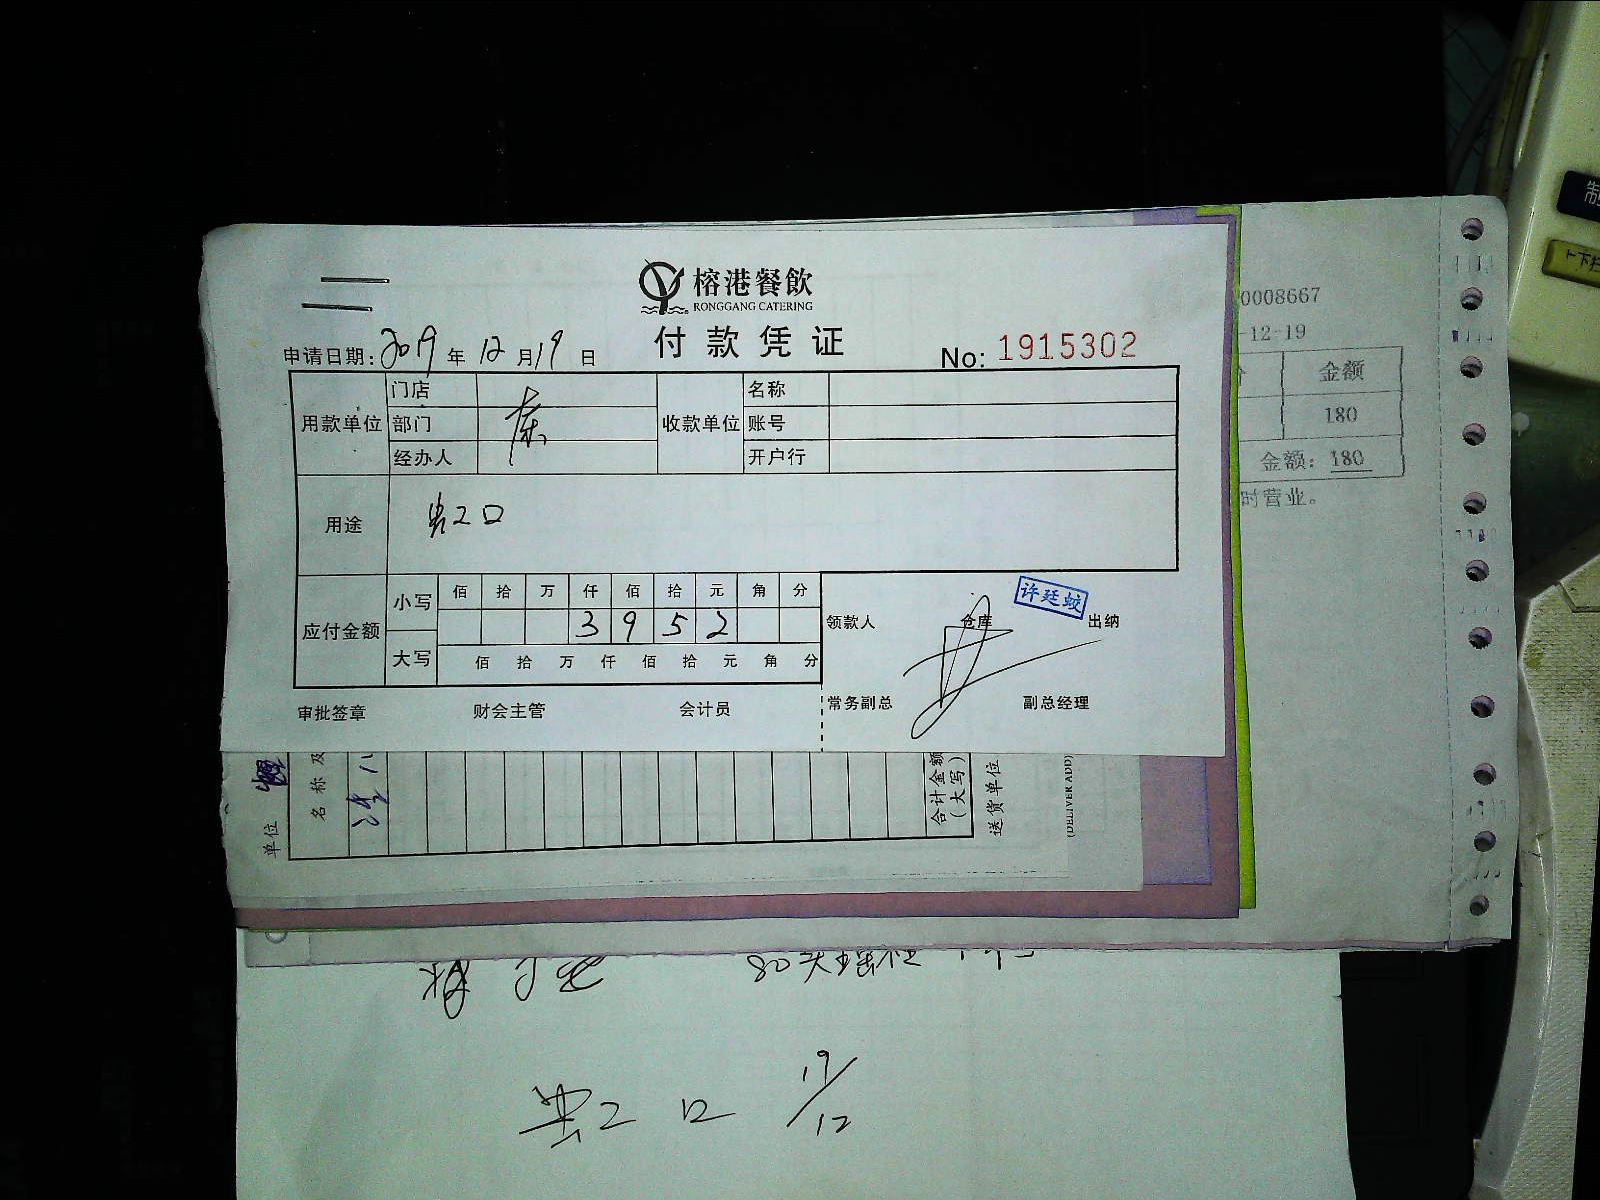 榕港餐飲
RONGGANG CATERING
付款凭证
申请日期: 2019 年 12 月 19 日
No: 1915302
用款单位 门店 收款单位 名称
部门 账号
经办人 开户行
用途 虹口
应付金额 小写 佰 拾 万 仟 佰 拾 元 角 分
3 9 5 2
大写 佰 拾 万 仟 佰 拾 元 角 分
领款人 仓库 出纳
许廷蛟
常务副总 副总经理
审批签章 财会主管 会计员
0008667
-12-19
金额
180
金额: 180
时营业。
单位
名称及
合计金额
(大写)
送货单位
(DELIVER ADD)
80头
虹口 19/12
制
上下扫